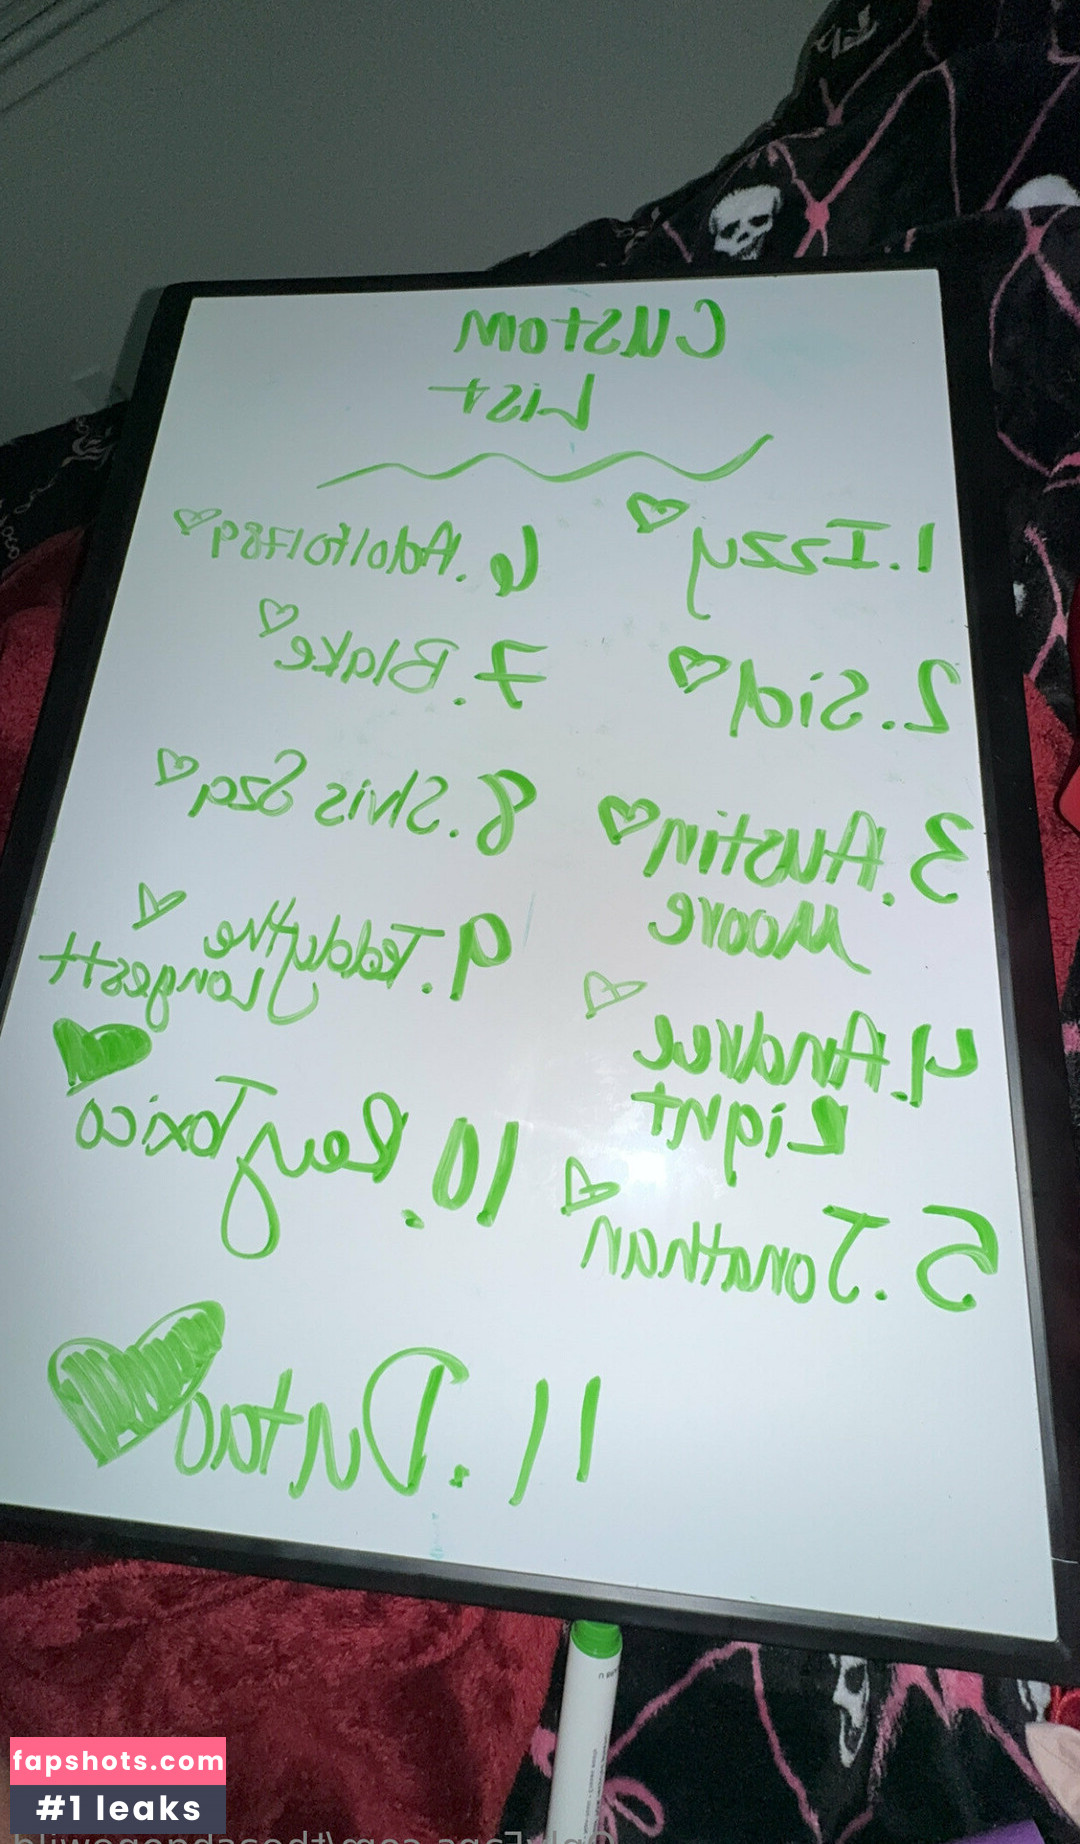 Custom
List
1. Izzy
2. Sid
3. Austin
Moore
4. Andree
Light
5. Jonathan
6. Adolfo1789
7. Blake
8. Shis Sza
9. Teddythe
Longestt
10. Rey Toxico
11. Dutao
fapshots.com
#1 leaks